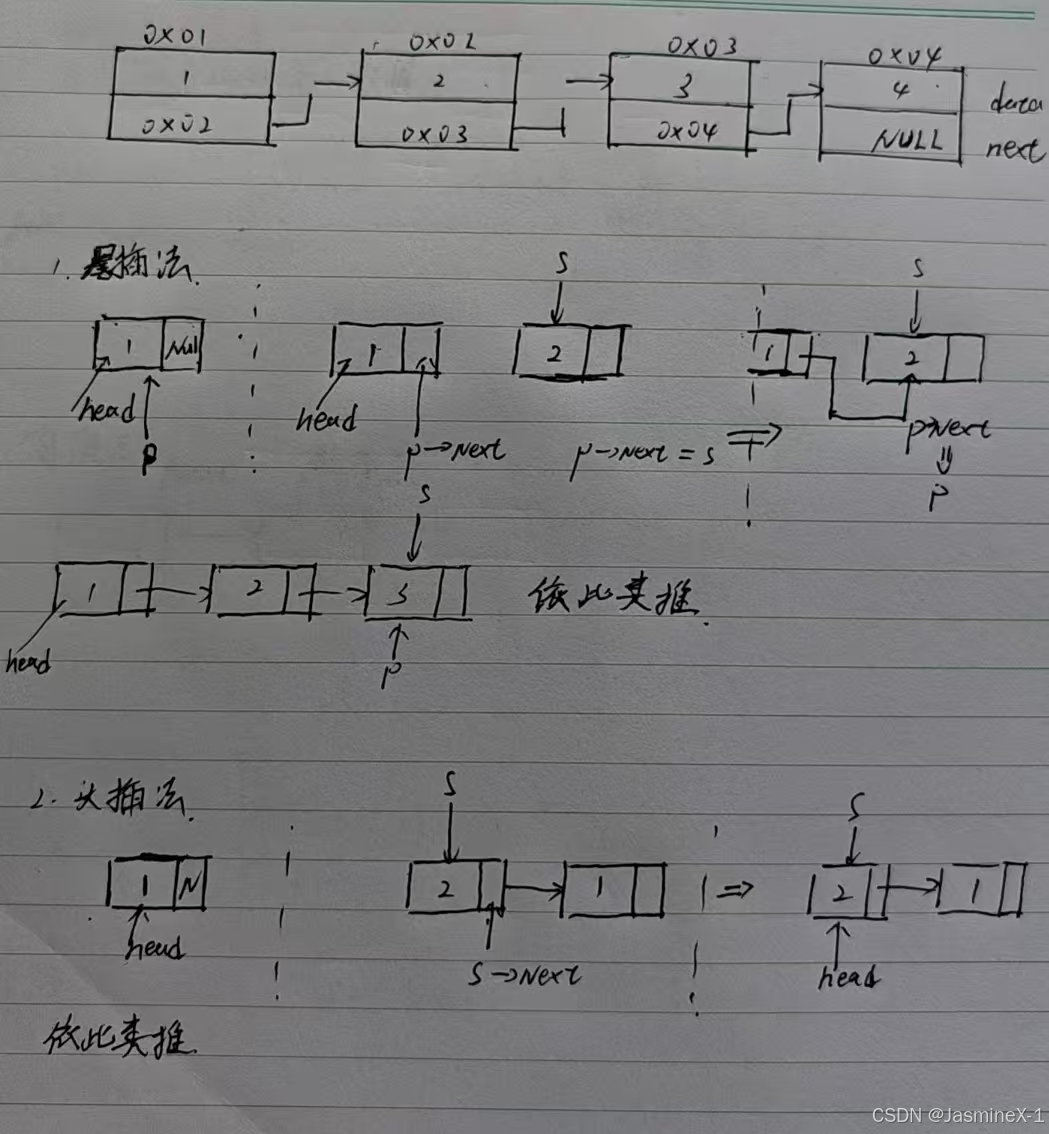 0x01 0x02 0x03 0x04
1 2 3 4 data
0x02 0x03 0x04 NULL next
1. 尾插法.
S S
1 Null 1 2 1 2
head head
p p→Next p→Next = S ⇒ p→Next
⇓
p
S
1 2 3 依此类推.
head p
2. 头插法.
S S
1 N 2 1 ⇒ 2 1
head S→Next head
依此类推.
CSDN @JasmineX-1